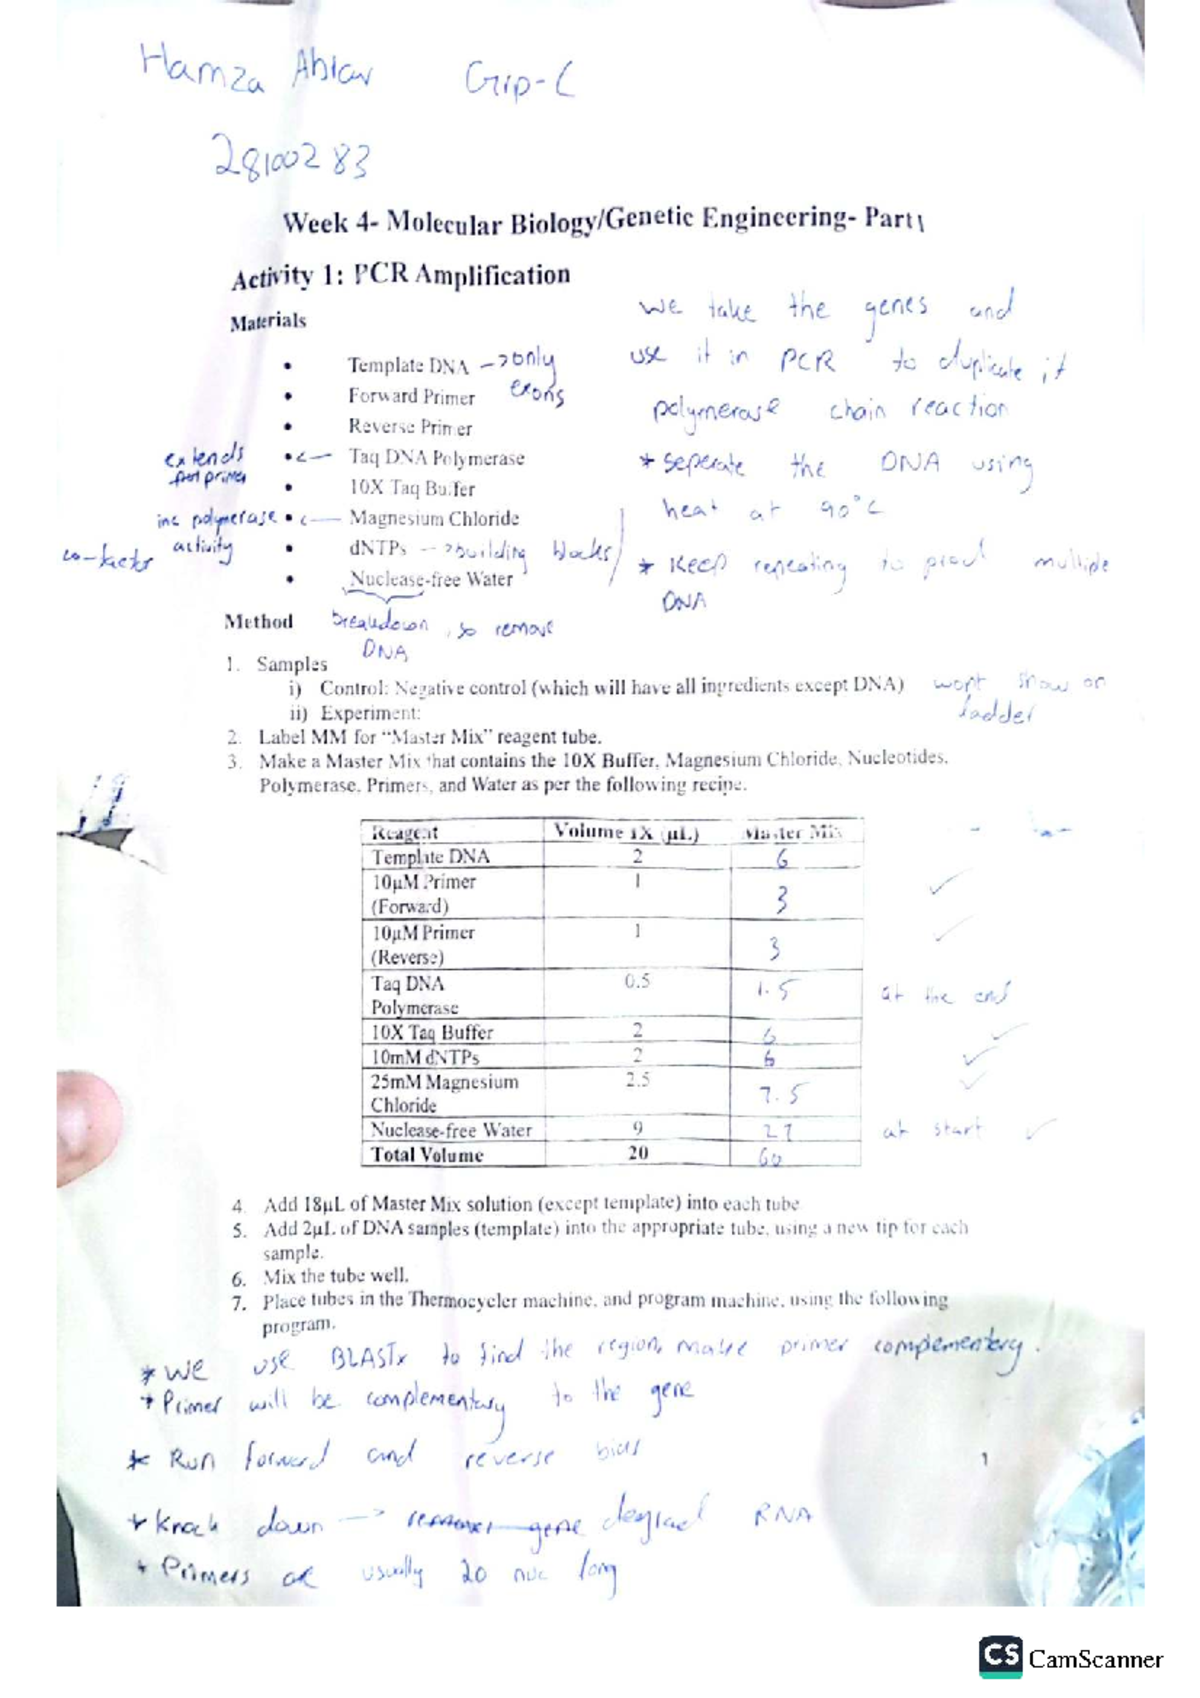 Hamza Ahlar Grp-C
28100283
Week 4- Molecular Biology/Genetic Engineering- Part 1
Activity 1: PCR Amplification
Materials
• Template DNA -> only exons
• Forward Primer
• Reverse Primer
• Taq DNA Polymerase
extends primer
• 10X Taq Buffer
• Magnesium Chloride
inc polymerase activity
co-factor
• dNTPs --> building blocks
• Nuclease-free Water
breakdown DNA, so remove
we take the genes and
use it in PCR to duplicate it
polymerase chain reaction
* seperate the DNA using
heat at 90°C
* Keep repeating to prod multiple
DNA
Method
1. Samples
i) Control: Negative control (which will have all ingredients except DNA) wont show on
ladder
ii) Experiment:
2. Label MM for “Master Mix” reagent tube.
3. Make a Master Mix that contains the 10X Buffer, Magnesium Chloride, Nucleotides,
Polymerase, Primers, and Water as per the following recipe.
Reagent Volume 1X (µL) Master Mix
Template DNA 2 6
10µM Primer 1 3
(Forward)
10µM Primer 1 3
(Reverse)
Taq DNA 0.5 1.5 at the end
Polymerase
10X Taq Buffer 2 6
10mM dNTPs 2 6
25mM Magnesium 2.5 7.5
Chloride
Nuclease-free Water 9 27 at start
Total Volume 20 60
4. Add 18µL of Master Mix solution (except template) into each tube
5. Add 2µL of DNA samples (template) into the appropriate tube, using a new tip for each
sample.
6. Mix the tube well.
7. Place tubes in the Thermocycler machine, and program machine, using the following
program.
* We use BLASTx to find the region, make primer complementery.
* Primer will be complementary to the gene
* Run forward and reverse bias
1
* Knock down -> gene degrad RNA
* Primers are usually 20 nuc long
CS CamScanner